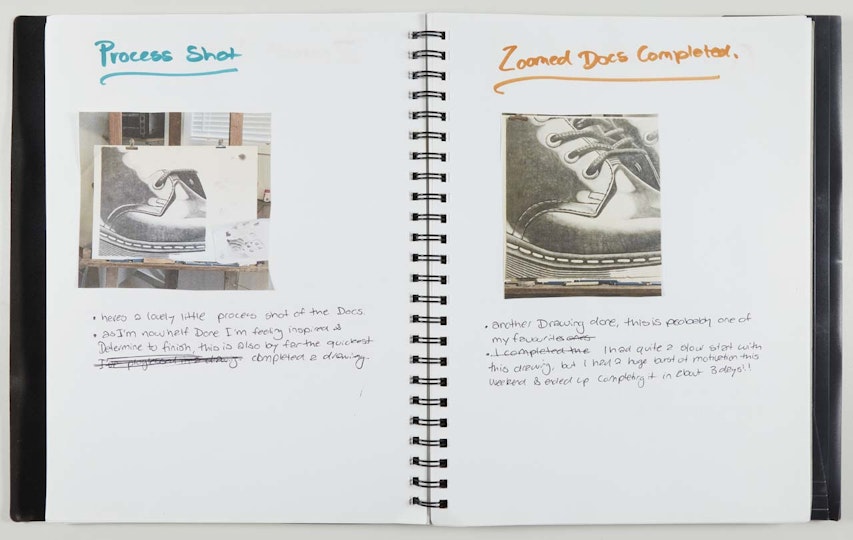 Process Shot
• heres a lovely little process shot of the Docs.
• as I'm now half Done I'm feeling inspired &
Determine to finish, this is also by far the quickest
I've progressed in a drawing completed a drawing.
Zoomed Docs Completed.
• another Drawing done, this is probably one of
my favourites ones
• I completed the I had quite a slow start with
this drawing, but I had a huge burst of motivation this
weekend & ended up completing it in about 3 days!!